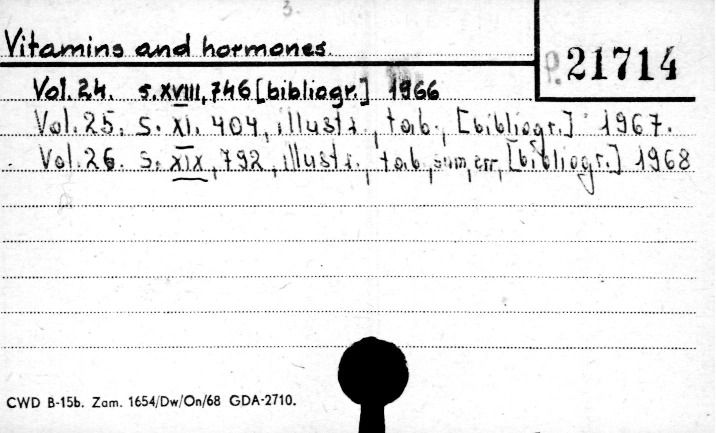 3.
Vitamins and hormones
P. 21714
Vol. 24. s. XVIII, 746 [bibliogr.] 1966
Vol. 25. S. XI. 404, illustr., tab., [bibliogr.] 1967.
Vol. 26. S. XIX, 792, illustr., tab, sum, err, [bibliogr.] 1968
CWD B-15b. Zam. 1654/Dw/On/68 GDA-2710.